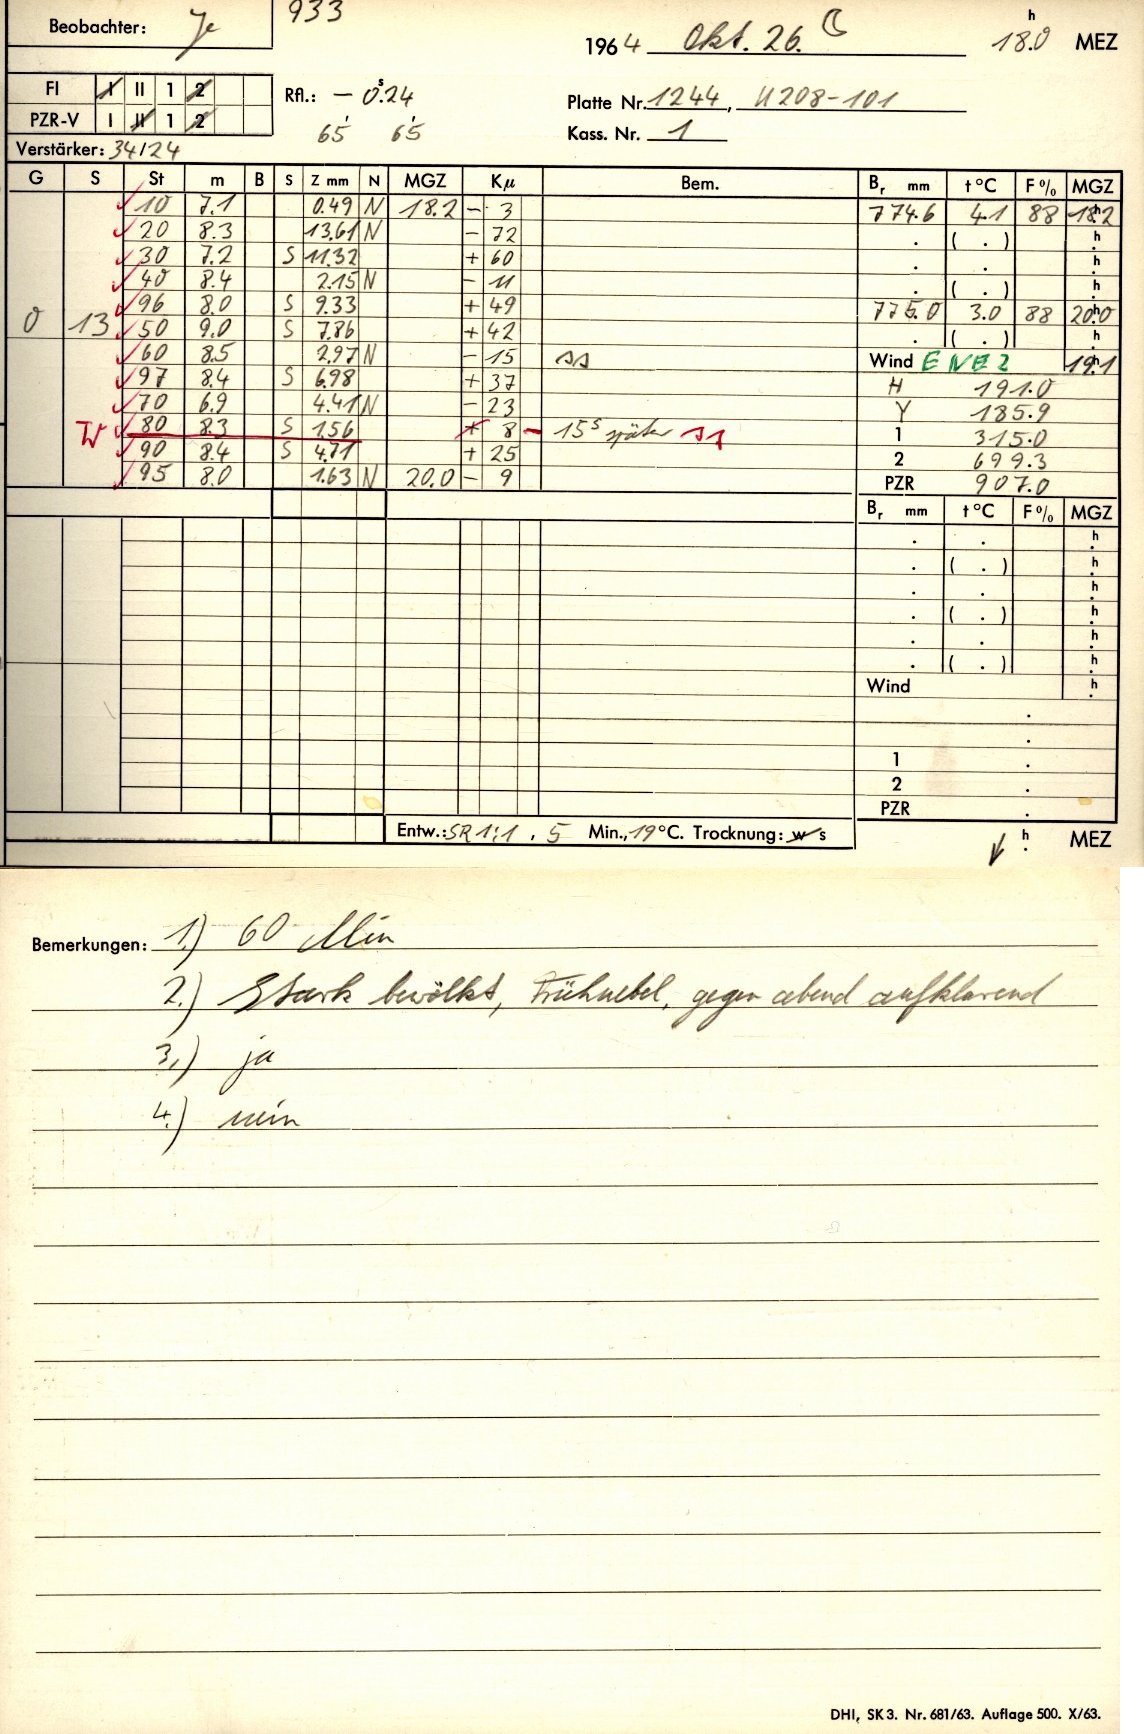 Beobachter: Je 933
1964 Okt. 26. 18.0 h MEZ
FI I II 1 2 Rfl.: – 0.24 s Platte Nr. 1244, U 208-101
PZR-V I II 1 2 65 65 Kass. Nr. 1
Verstärker: 34/24
G S St m B S Z mm N MGZ Kµ Bem. Br mm t °C F % MGZ
10 7.1 0.49 N 18.2 – 3 774.6 4.1 88 18.2 h
20 8.3 13.61 N – 72 . ( . ) h
30 7.2 S 11.32 + 60 . . h
40 8.4 2.15 N – 11 . ( . ) h
96 8.0 S 9.33 + 49 775.0 3.0 88 20.0 h
0 13 50 9.0 S 7.86 + 42 . ( . ) h
60 8.5 2.97 N – 15 ss Wind E NE 2 19.1 h
97 8.4 S 6.98 + 37 H 191.0
70 6.9 4.41 N – 23 Y 185.9
W 80 8.3 S 1.56 + 8 – 15 s später ss 1 315.0
90 8.4 S 4.71 + 25 2 699.3
95 8.0 1.63 N 20.0 – 9 PZR 907.0
Br mm t °C F % MGZ
. . h
. ( . ) h
. . h
. ( . ) h
. . h
. ( . ) h
Wind h
.
.
1 .
2 .
PZR .
Entw.: SR 1:1 . 5 Min., 19 °C. Trocknung: w s h MEZ
Bemerkungen: 1.) 60 Min
2.) Stark bewölkt, Frühnebel, gegen abend aufklarend
3.) ja
4.) nein
DHI, SK 3. Nr. 681/63. Auflage 500. X/63.